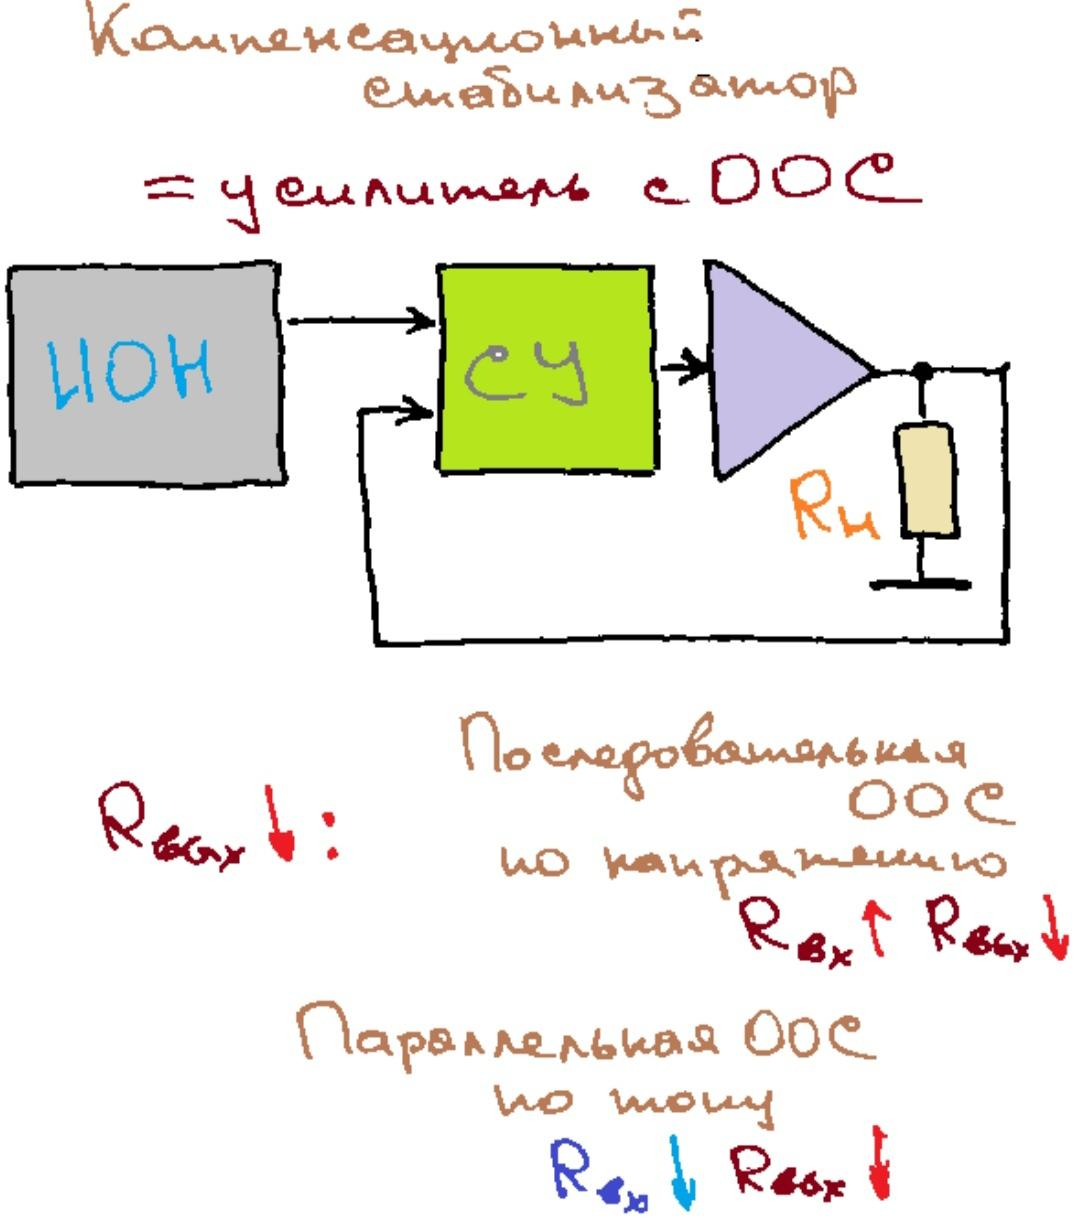 Компенсационный
стабилизатор
= усилитель с ООС
ИОН
СУ
Rн
Последовательная
ООС
Rвых ↓ :
по напряжению
Rвх ↑ Rвых ↓
Параллельная ООС
по току
Rвх ↓ Rвых ↓